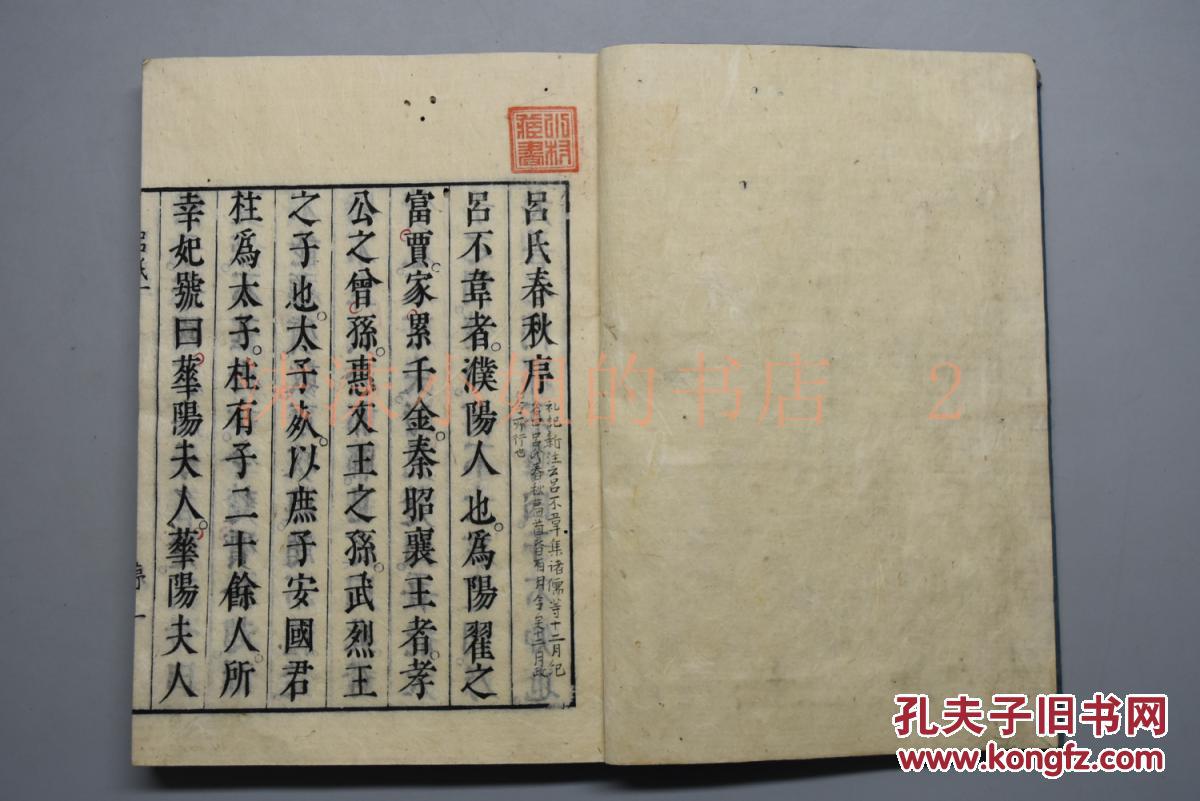 呂氏春秋序
礼記新注云呂不韋集诸儒等十二月紀
今亦行也
呂不韋者濮陽人也為陽翟之
富賈家累千金秦昭襄王者孝
公之曾孫惠文王之孫武烈王
之子也太子死以庶子安國君
柱爲太子柱有子二十餘人所
幸妃號曰華陽夫人華陽夫人
呂氏一
序一
藏書
沫沫小姐的书店 2
孔夫子旧书网
www.kongfz.com